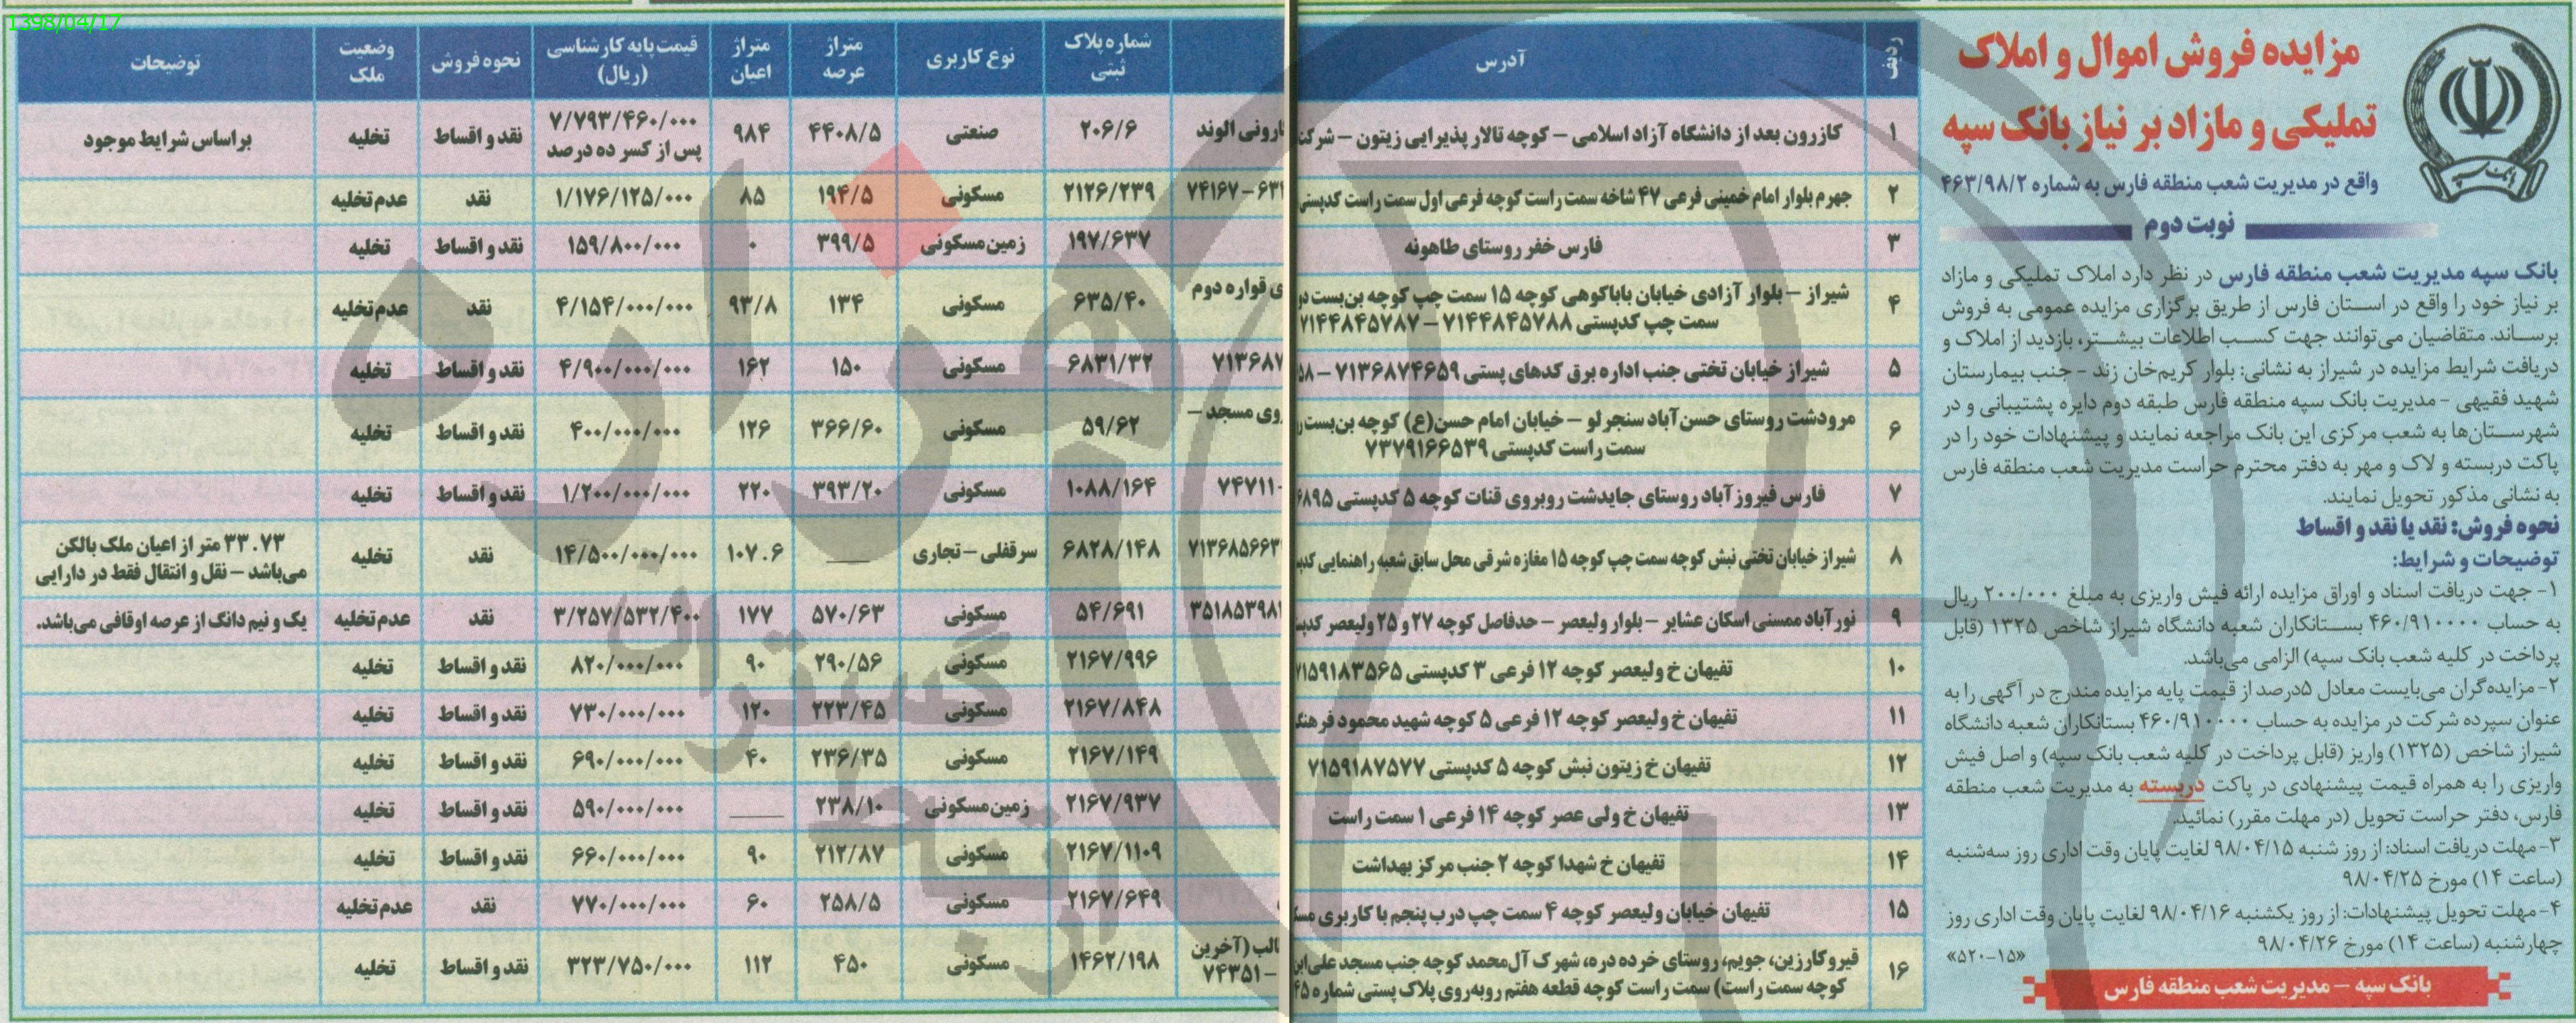 1398/04/17
مزایده فروش اموال و املاک
تملیکی و مازاد بر نیاز بانک سپه
واقع در مدیریت شعب منطقه فارس به شماره ۴۶۳/۹۸/۲
نوبت دوم
بانک سپه مدیریت شعب منطقه فارس در نظر دارد املاک تملیکی و مازاد
بر نیاز خود را واقع در استان فارس از طریق برگزاری مزایده عمومی به فروش
برساند. متقاضیان می‌توانند جهت کسب اطلاعات بیشتر، بازدید از املاک و
دریافت شرایط مزایده در شیراز به نشانی: بلوار کریم‌خان زند - جنب بیمارستان
شهید فقیهی - مدیریت بانک سپه منطقه فارس طبقه دوم دایره پشتیبانی و در
شهرستان‌ها به شعب مرکزی این بانک مراجعه نمایند و پیشنهادات خود را در
پاکت دربسته و لاک و مهر به دفتر محترم حراست مدیریت شعب منطقه فارس
به نشانی مذکور تحویل نمایند.
نحوه فروش: نقد یا نقد و اقساط
توضیحات و شرایط:
۱- جهت دریافت اسناد و اوراق مزایده ارائه فیش واریزی به مبلغ ۲۰۰/۰۰۰ ریال
به حساب ۴۶۰/۹۱۰۰۰۰ بستانکاران شعبه دانشگاه شیراز شاخص ۱۳۲۵ (قابل
پرداخت در کلیه شعب بانک سپه) الزامی می‌باشد.
۲- مزایده‌گران می‌بایست معادل ۵درصد از قیمت پایه مزایده مندرج در آگهی را به
عنوان سپرده شرکت در مزایده به حساب ۴۶۰/۹۱۰۰۰۰ بستانکاران شعبه دانشگاه
شیراز شاخص (۱۳۲۵) واریز (قابل پرداخت در کلیه شعب بانک سپه) و اصل فیش
واریزی را به همراه قیمت پیشنهادی در پاکت دربسته به مدیریت شعب منطقه
فارس، دفتر حراست تحویل (در مهلت مقرر) نمائید.
۳- مهلت دریافت اسناد: از روز شنبه ۹۸/۰۴/۱۵ لغایت پایان وقت اداری روز سه‌شنبه
(ساعت ۱۴) مورخ ۹۸/۰۴/۲۵
۴- مهلت تحویل پیشنهادات: از روز یکشنبه ۹۸/۰۴/۱۶ لغایت پایان وقت اداری روز
چهارشنبه (ساعت ۱۴) مورخ ۹۸/۰۴/۲۶
«۵۲۰-۱۵»
بانک سپه – مدیریت شعب منطقه فارس
ردیف آدرس شماره پلاک ثبتی نوع کاربری متراژ عرصه متراژ اعیان قیمت پایه کارشناسی (ریال) نحوه فروش وضعیت ملک توضیحات
۱ کازرون بعد از دانشگاه آزاد اسلامی – کوچه تالار پذیرایی زیتون – الوند ۲۰۶/۶ صنعتی ۴۴۰۸/۵ ۹۸۴ ۷/۷۹۳/۴۶۰/۰۰۰ پس از کسر ده درصد نقد و اقساط تخلیه براساس شرایط موجود
۲ جهرم بلوار امام خمینی فرعی ۴۷ شاخه سمت راست کوچه فرعی اول سمت راست کدپستی ۷۴۱۶۷ ۲۱۲۶/۲۳۹ مسکونی ۱۹۴/۵ ۸۵ ۱/۱۷۶/۱۲۵/۰۰۰ نقد عدم تخلیه
۳ فارس خفر روستای طاهونه ۱۹۷/۶۳۷ زمین مسکونی ۳۹۹/۵ ۰ ۱۵۹/۸۰۰/۰۰۰ نقد و اقساط تخلیه
۴ شیراز – بلوار آزادی خیابان باباکوهی کوچه ۱۵ سمت چپ کوچه بن‌بست قواره دوم
سمت چپ کدپستی ۷۱۴۴۸۴۵۷۸۸ – ۷۱۴۴۸۴۵۷۸۷ ۶۳۵/۴۰ مسکونی ۱۳۴ ۹۳/۸ ۴/۱۵۴/۰۰۰/۰۰۰ نقد عدم تخلیه
۵ شیراز خیابان تختی جنب اداره برق کدهای پستی ۷۱۳۶۸۷۴۶۵۹ – ۶۸۳۱/۳۲ مسکونی ۱۵۰ ۱۶۲ ۴/۹۰۰/۰۰۰/۰۰۰ نقد و اقساط تخلیه
۶ مرودشت روستای حسن‌آباد سنجرلو – خیابان امام حسن(ع) کوچه بن‌بست مسجد –
سمت راست کدپستی ۷۳۷۹۱۶۶۵۳۹ ۵۹/۶۲ مسکونی ۳۶۶/۶۰ ۱۲۶ ۴۰۰/۰۰۰/۰۰۰ نقد و اقساط تخلیه
۷ فارس فیروزآباد روستای جایدشت روبروی قنات کوچه ۵ کدپستی ۷۴۷۱۱ ۱۰۸۸/۱۶۴ مسکونی ۳۹۳/۲۰ ۲۲۰ ۱/۲۰۰/۰۰۰/۰۰۰ نقد و اقساط تخلیه
۸ شیراز خیابان تختی نبش کوچه سمت چپ کوچه ۱۵ مغازه شرقی محل سابق شعبه راهنمایی ۶۸۲۸/۱۴۸ سرقفلی – تجاری — ۱۰۷.۶ ۱۴/۵۰۰/۰۰۰/۰۰۰ نقد تخلیه ۳۳.۷۳ متر از اعیان ملک بالکن
می‌باشد – نقل و انتقال فقط در دارایی
۹ نورآباد ممسنی اسکان عشایر – بلوار ولیعصر – حدفاصل کوچه ۲۷ و ۲۵ ولیعصر ۵۴/۶۹۱ مسکونی ۵۷۰/۶۳ ۱۷۷ ۳/۲۵۷/۵۳۲/۴۰۰ نقد عدم تخلیه یک و نیم دانگ از عرصه اوقافی می‌باشد.
۱۰ تفیهان خ ولیعصر کوچه ۱۲ فرعی ۳ کدپستی ۷۱۵۹۱۸۳۵۶۵ ۲۱۶۷/۹۹۶ مسکونی ۲۹۰/۵۶ ۹۰ ۸۲۰/۰۰۰/۰۰۰ نقد و اقساط تخلیه
۱۱ تفیهان خ ولیعصر کوچه ۱۲ فرعی ۵ کوچه شهید محمود ۲۱۶۷/۸۴۸ مسکونی ۲۲۳/۴۵ ۱۲۰ ۷۳۰/۰۰۰/۰۰۰ نقد و اقساط تخلیه
۱۲ تفیهان خ زیتون نبش کوچه ۵ کدپستی ۷۱۵۹۱۸۷۵۷۷ ۲۱۶۷/۱۴۹ مسکونی ۲۳۶/۳۵ ۴۰ ۶۹۰/۰۰۰/۰۰۰ نقد و اقساط تخلیه
۱۳ تفیهان خ ولی عصر کوچه ۱۴ فرعی ۱ سمت راست ۲۱۶۷/۹۳۷ زمین مسکونی ۲۳۸/۱۰ — ۵۹۰/۰۰۰/۰۰۰ نقد و اقساط تخلیه
۱۴ تفیهان خ شهدا کوچه ۲ جنب مرکز بهداشت ۲۱۶۷/۱۱۰۹ مسکونی ۲۱۲/۸۷ ۹۰ ۶۶۰/۰۰۰/۰۰۰ نقد و اقساط تخلیه
۱۵ تفیهان خیابان ولیعصر کوچه ۴ سمت چپ درب پنجم با کاربری ۲۱۶۷/۶۴۹ مسکونی ۲۵۸/۵ ۶۰ ۷۷۰/۰۰۰/۰۰۰ نقد عدم تخلیه
۱۶ قیروکارزین، جویم، روستای خرده دره، شهرک آل‌محمد کوچه جنب مسجد (آخرین
کوچه سمت راست) سمت راست کوچه قطعه هفتم روبه‌روی پلاک پستی شماره ۴۵ ۷۴۳۵۱ ۱۴۶۲/۱۹۸ مسکونی ۴۵۰ ۱۱۲ ۳۲۳/۷۵۰/۰۰۰ نقد و اقساط تخلیه